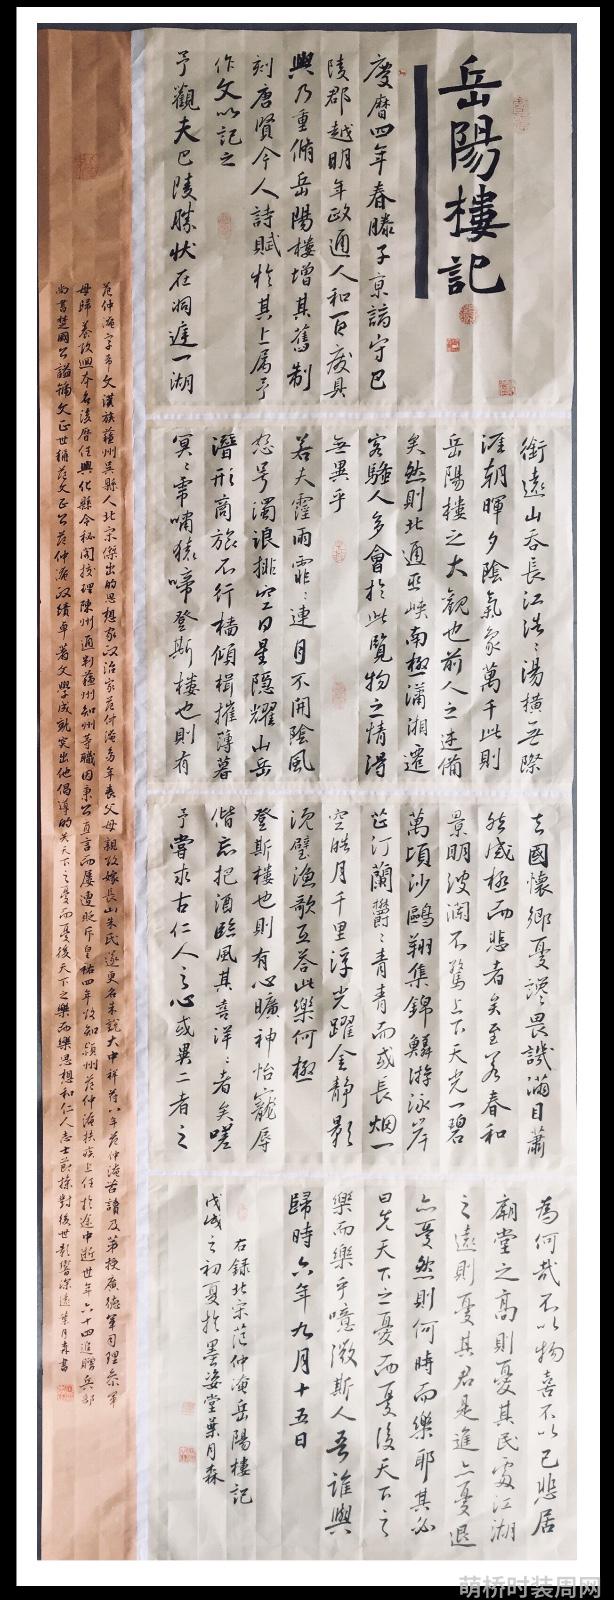 岳陽樓記
慶曆四年春滕子京謫守巴
陵郡越明年政通人和百廢具
興乃重脩岳陽樓增其舊制
刻唐賢今人詩賦於其上屬予
作文以記之
予觀夫巴陵勝狀在洞庭一湖
銜遠山吞長江浩〻湯橫無際
涯朝暉夕陰氣象萬千此則
岳陽樓之大觀也前人之述備
矣然則北通巫峽南極瀟湘遷
客騷人多會於此覽物之情得
無異乎
若夫霪雨霏〻連月不開陰風
怒号濁浪排空日星隱耀山岳
潛形商旅不行檣傾楫摧薄暮
冥〻虎嘯猿啼登斯樓也則有
去國懷鄉憂讒畏譏滿目蕭
然感極而悲者矣至若春和
景明波瀾不驚上下天光一碧
萬頃沙鷗翔集錦鱗游泳岸
芷汀蘭鬱〻青青而或長烟一
空皓月千里浮光躍金静影
沉璧漁歌互答此樂何極
登斯樓也則有心曠神怡寵辱
偕忘把酒臨風其喜洋〻者矣嗟
予嘗求古仁人之心或異二者之
為何哉不以物喜不以己悲居
廟堂之高則憂其民處江湖
之遠則憂其君是進亦憂退
亦憂然則何時而樂耶其必
曰先天下之憂而憂後天下之
樂而樂乎噫微斯人吾誰與
歸時六年九月十五日
右錄北宋范仲淹岳陽樓記
戊戌之初夏於墨姿堂葉月森
范仲淹字希文漢族蘇州吳縣人北宋傑出的思想家政治家范仲淹多年喪父母親改嫁長山朱氏遂更名朱說大中祥符八年范仲淹苦讀及第授廣德軍司理參軍
母歸養改回本名後歷任興化縣令秘閣校理陳州通判蘇州知州等職因秉公直言而屢遭貶斥皇祐四年改知潁州范仲淹扶疾上任於途中逝世年六十四追贈兵部
尚書楚國公諡號文正世稱范文正公范仲淹政績卓著文學成就突出他倡導的先天下之憂而憂後天下之樂而樂思想和仁人志士節操對後世影響深遠葉月森書
萌桥时装周网